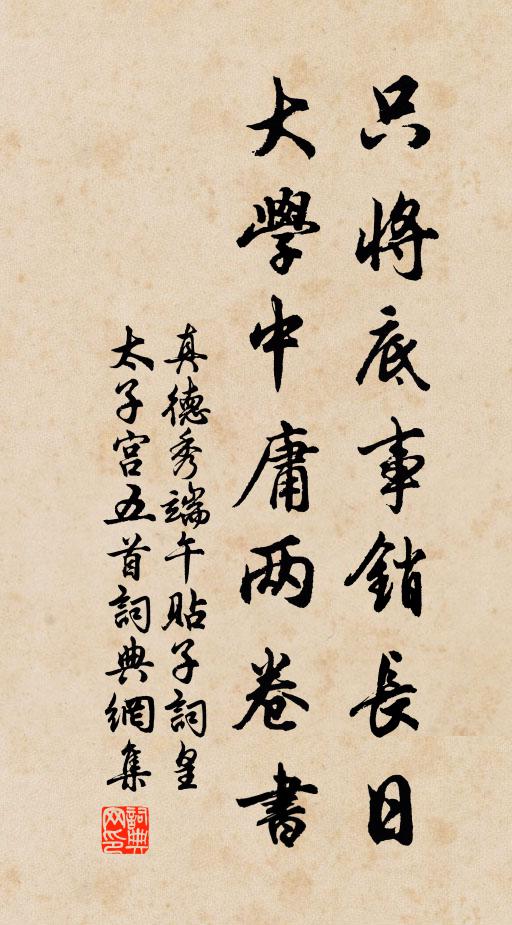 只將底事銷長日
大學中庸兩卷書
真德秀端午貼子詞皇
太子宮五首詞典網集
詞典
网印